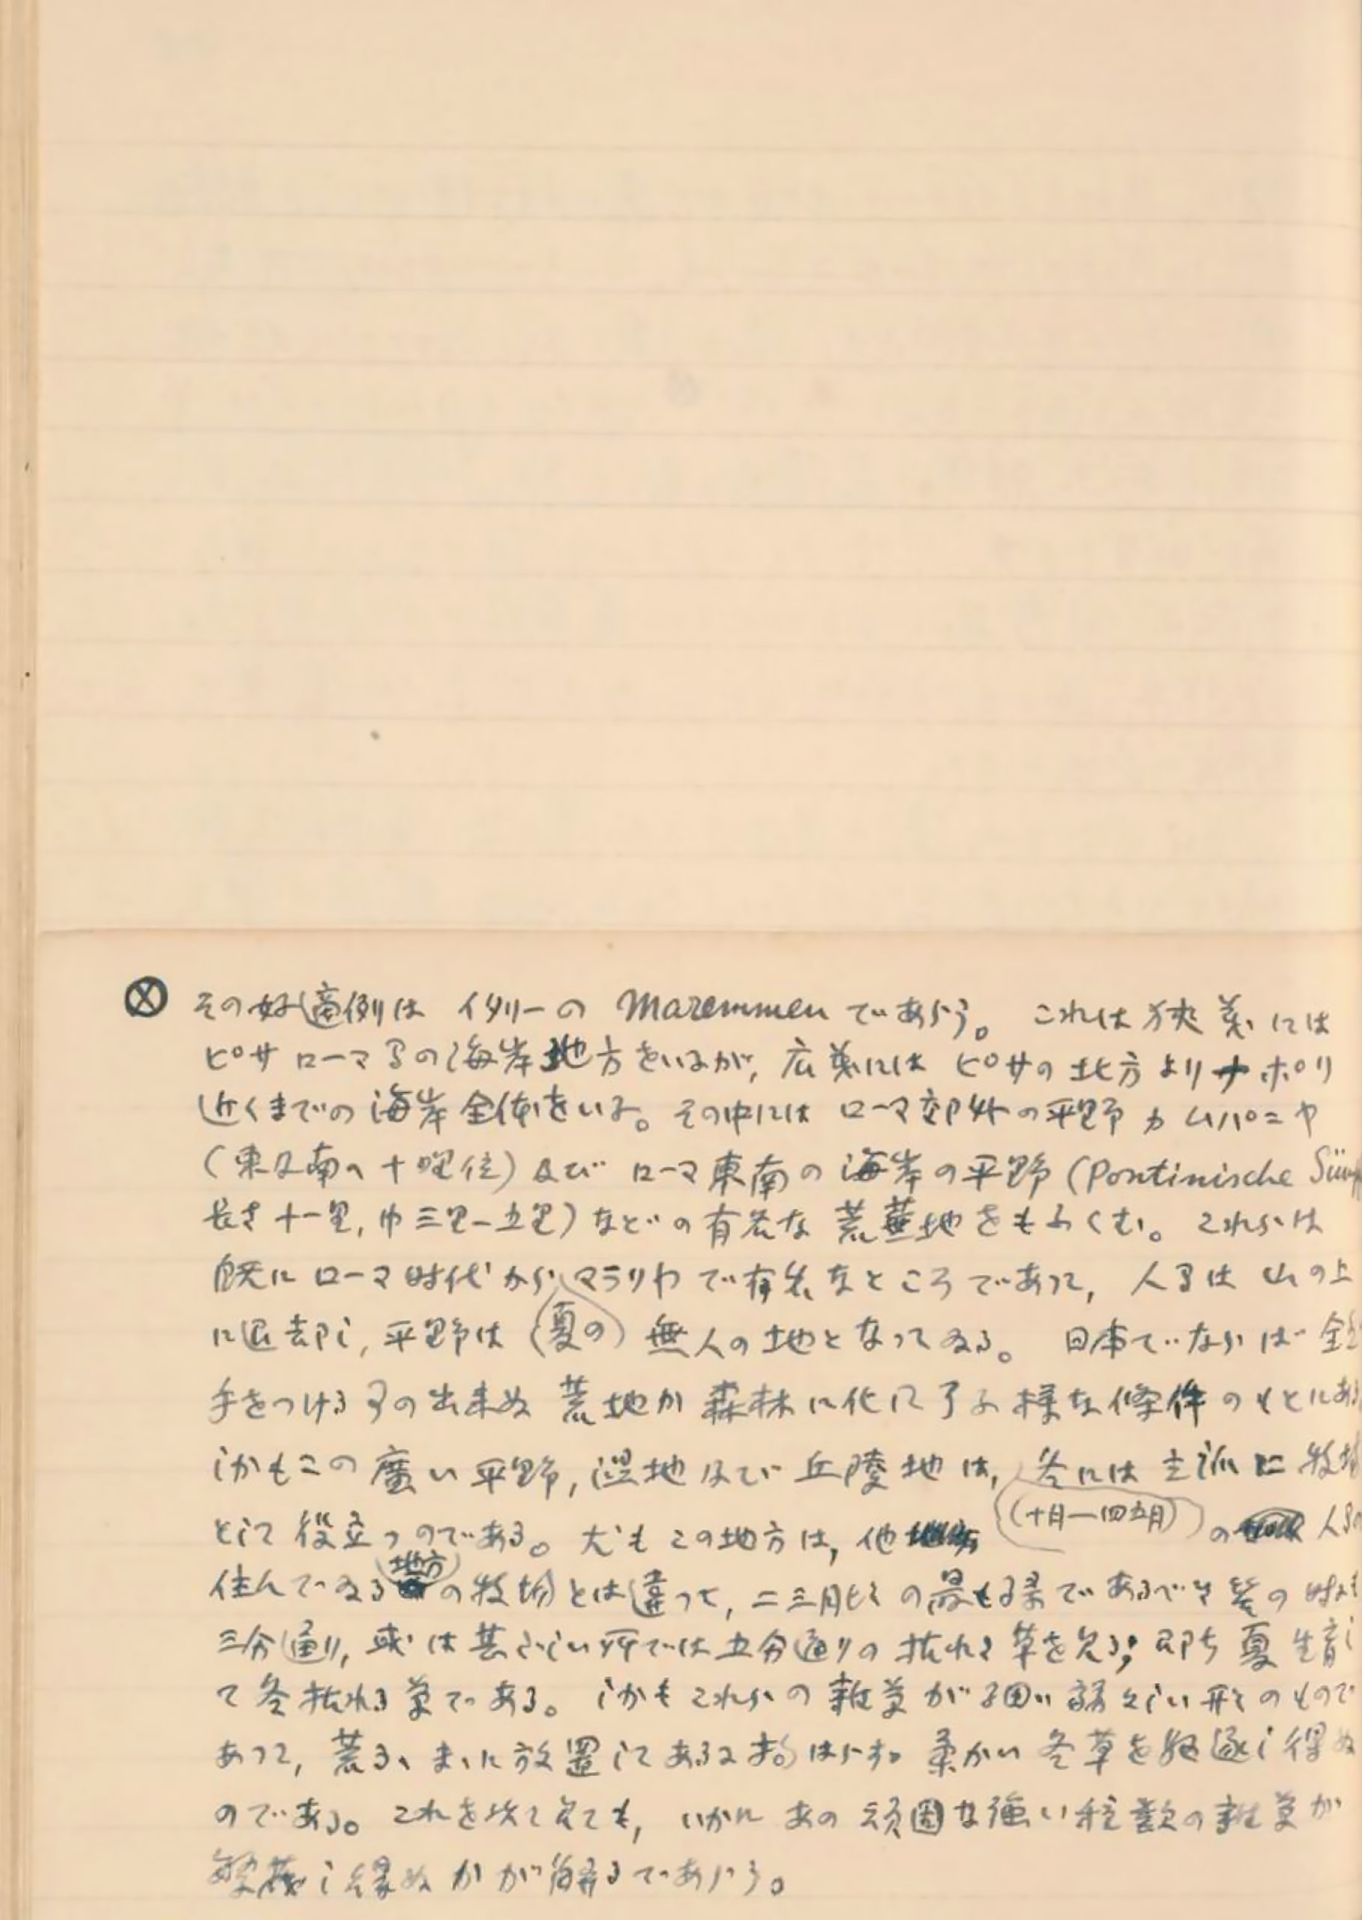 ⊗ その好適例は イタリーの Maremmen であらう。 これは狭義には
ピサ ローマ間の海岸地方をいふが, 広義には ピサの北方より ナポリ
近くまでの 海岸全体をいふ。その中には ローマ郊外の平野 カムパニヤ
(東及南へ十哩位) 及び ローマ東南の海岸の平野 (Pontinische
長さ十一里, 巾三里—五里) などの有名な荒蕪地をもふくむ。これらは
既に ローマ時代から マラリヤで有名なところであって, 人間は 山の上
に退却し, 平野は (夏の) 無人の地となってゐる。 日本でならば
手をつける事の出来ぬ 荒地か 森林に化して了ふ様な條件のもとにある
しかもこの 廣い平野, 湿地及び 丘陵地は, 冬には 立派に 牧場
として役立つのである。尤もこの地方は, 他 (十月—四五月) の 人間の
住んでゐる 地方 の牧場とは違って, 二三月頃の最も緑であるべき筈の時も
三分通り, 或は甚だしい所では五分通りの枯れた草を見る; 即ち 夏生育し
て冬枯れる草である。しかもこれらの雑草が細い弱々しい形のもので
あって, 荒るゝまゝに放置してあるにも拘はらず 柔かい 冬草を駆逐し得ぬ
のである。これを以て見ても, いかに あの頑固な強い種類の雑草が
繁茂し得ぬかが解るであらう。